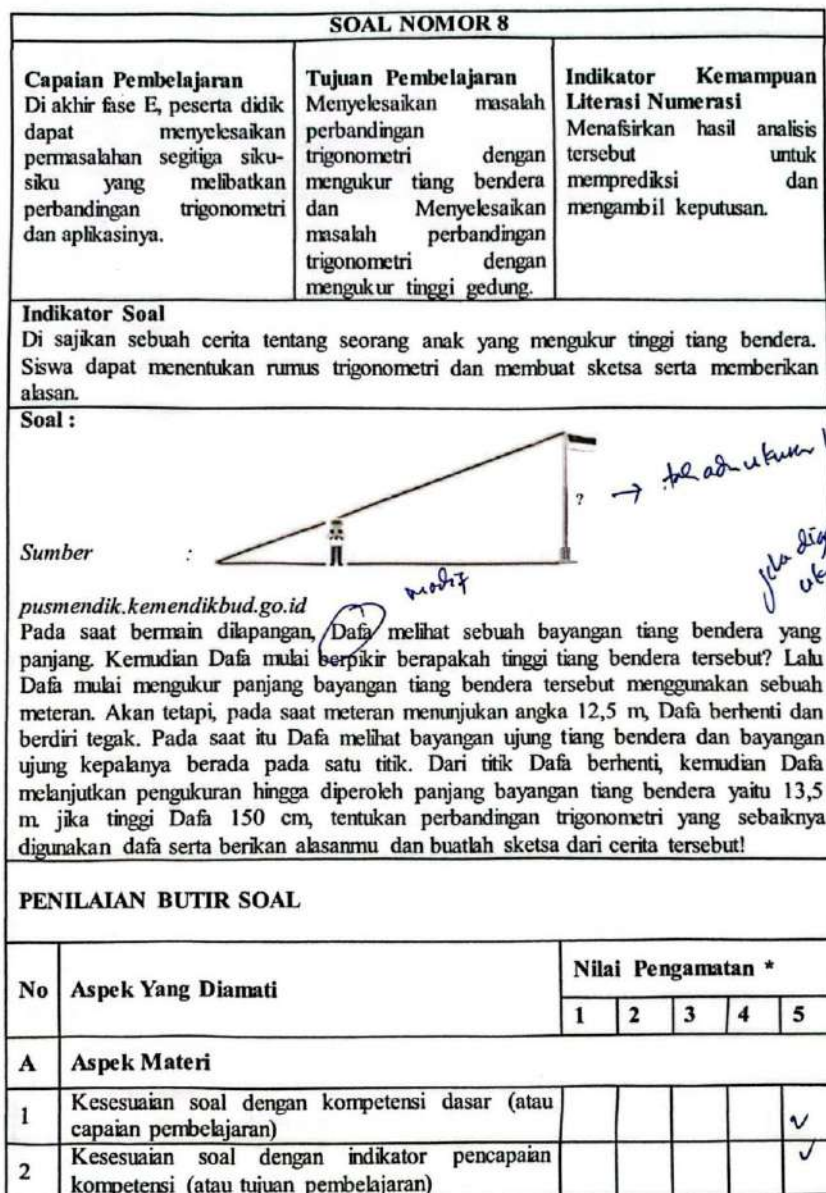 SOAL NOMOR 8
Capaian Pembelajaran
Di akhir fase E, peserta didik
dapat menyelesaikan
permasalahan segitiga siku-
siku yang melibatkan
perbandingan trigonometri
dan aplikasinya.
Tujuan Pembelajaran
Menyelesaikan masalah
perbandingan
trigonometri dengan
mengukur tiang bendera
dan Menyelesaikan
masalah perbandingan
trigonometri dengan
mengukur tinggi gedung.
Indikator Kemampuan
Literasi Numerasi
Menafsirkan hasil analisis
tersebut untuk
memprediksi dan
mengambil keputusan.
Indikator Soal
Di sajikan sebuah cerita tentang seorang anak yang mengukur tinggi tiang bendera.
Siswa dapat menentukan rumus trigonometri dan membuat sketsa serta memberikan
alasan.
Soal :
?
Sumber :
modif
pusmendik.kemendikbud.go.id
Pada saat bermain dilapangan, Dafa melihat sebuah bayangan tiang bendera yang
panjang. Kemudian Dafa mulai berpikir berapakah tinggi tiang bendera tersebut? Lalu
Dafa mulai mengukur panjang bayangan tiang bendera tersebut menggunakan sebuah
meteran. Akan tetapi, pada saat meteran menunjukan angka 12,5 m, Dafa berhenti dan
berdiri tegak. Pada saat itu Dafa melihat bayangan ujung tiang bendera dan bayangan
ujung kepalanya berada pada satu titik. Dari titik Dafa berhenti, kemudian Dafa
melanjutkan pengukuran hingga diperoleh panjang bayangan tiang bendera yaitu 13,5
m. jika tinggi Dafa 150 cm, tentukan perbandingan trigonometri yang sebaiknya
digunakan dafa serta berikan alasanmu dan buatlah sketsa dari cerita tersebut!
PENILAIAN BUTIR SOAL
No Aspek Yang Diamati Nilai Pengamatan *
1 2 3 4 5
A Aspek Materi
1 Kesesuaian soal dengan kompetensi dasar (atau
capaian pembelajaran) ✓
2 Kesesuaian soal dengan indikator pencapaian
kompetensi (atau tujuan pembelajaran) ✓